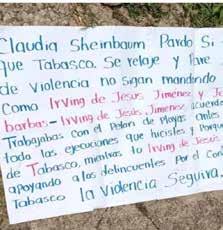 Claudia Sheinbaum Pardo Si
que Tabasco. Se relaje y
de Violencia no sigan mandando
Como Irving de Jesus Jimenez y
barbas - Irving de Jesus, Jimenez, acuerda
Trabajabas con el Pelon de Playas antes
todo las ejecuciones que hicistes y Porque
de Tabasco, mientras tu Irving de Jesus
apoyando a los delincuentes Por el
Tabasco la Violencia Seguira.